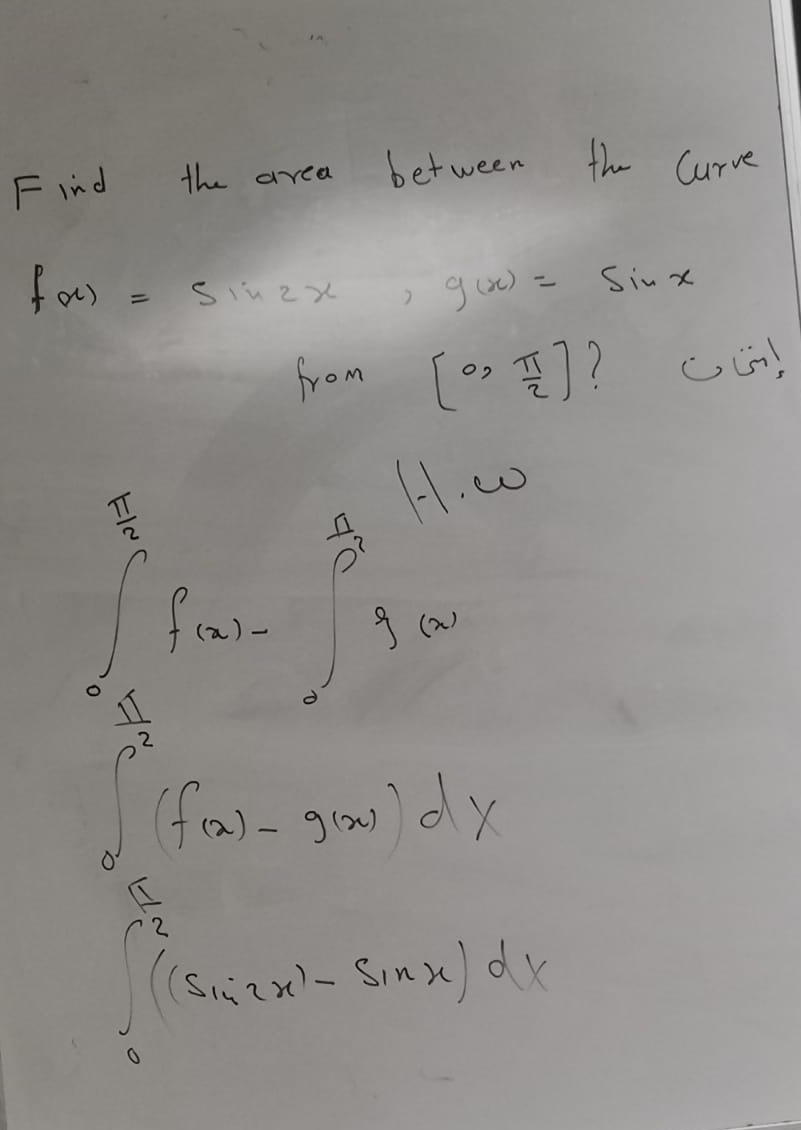 Find the area between the Curve
f(x) = sin2x , g(x) = Sinx
from [0, π/2]?
H.w
∫₀^(π/2) f(x) - ∫₀^(π/2) g(x)
∫₀^(π/2) (f(x) - g(x)) dx
∫₀^(π/2) ((sin2x) - Sinx) dx